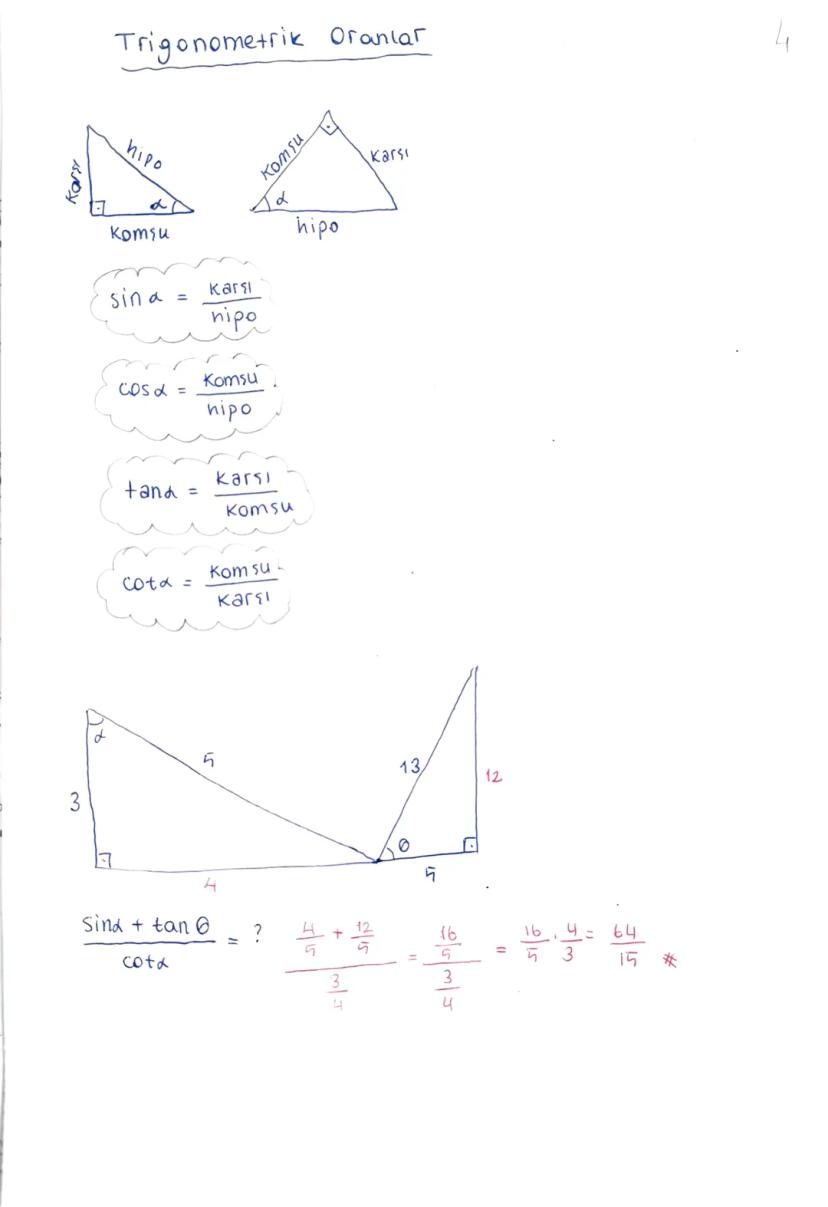 Trigonometrik Oranlar
4
Karşı
hipo
α
Komşu
Komşu
Karşı
α
hipo
sin α = Karşı / hipo
cos α = Komşu / hipo
tan α = Karşı / Komşu
cot α = Komşu / Karşı
α
3
5
4
13
12
θ
5
(sin α + tan θ) / cot α = ? (4/5 + 12/5) / (3/4) = (16/5) / (3/4) = 16/5 · 4/3 = 64/15 *